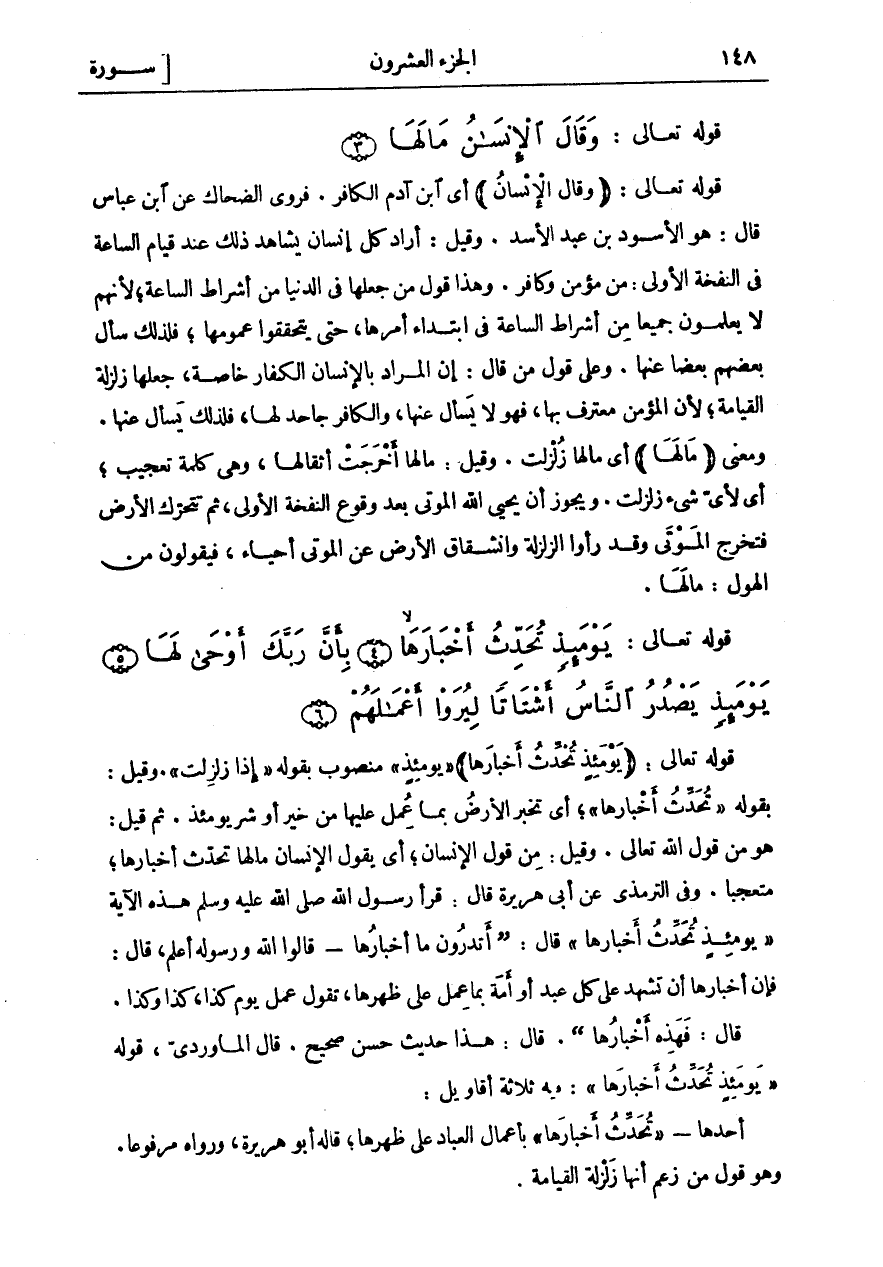 ١٤٨ الجزء العشرون [ ســـورة
قوله تعـالى : وَقَالَ ٱلْإِنسَٰنُ مَا لَهَا ﴿٣﴾
قوله تعـالى : ﴿ وقال الْإِنْسانُ ﴾ أى ٱبن آدم الكافر . فروى الضحاك عن ٱبن عباس
قال : هو الأسـود بن عبد الأسد . وقيل : أراد كل إنسان يشاهد ذلك عند قيام الساعة
فى النفخة الأولى : من مؤمن وكافر . وهذا قول من جعلها فى الدنيا من أشراط الساعة ؛ لأنهم
لا يعلمـون جميعا مِن أشراط الساعة فى ابتـداء أمرها، حتى يتحققوا عمومها ؛ فلذلك سأل
بعضهم بعضا عنها . وعلى قول من قال : إن المـراد بالإنسان الكفار خاصـة، جعلها زلزلة
القيامة ؛ لأن المؤمن معترف بها، فهو لا يَسأل عنها، والكافر جاحد لهـا، فلذلك يَسأل عنها .
ومعنى ﴿ مَالَهَا ﴾ أى مالها زُلْزلت . وقيل : مالها أَخْرَجَتْ أثقالهـا ، وهى كلمة تعجيب ؛
أى لأىّ شىء زلزلت . ويجوز أن يحيى الله الموتى بعد وقوع النفخة الأولى، ثم تتحرّك الأرض
فتخرج المَـوْتَى وقـد رأوا الزلزلة وانشـقاق الأرض عن الموتى أحيـاء ، فيقولون مـن
الهول : مالَهَـا .
قوله تعـالى : يَوْمَئِذٍ تُحَدِّثُ أَخْبَارَهَا ۙ ﴿٤﴾ بِأَنَّ رَبَّكَ أَوْحَىٰ لَهَـا ﴿٥﴾
يَوْمَئِذٍ يَصْدُرُ ٱلنَّاسُ أَشْتَاتًا لِيُرَوْا أَعْمَٰلَهُمْ ﴿٦﴾
قوله تعالى : ﴿يَوْمَئِذٍ تُحَدِّثُ أَخبارَها﴾ «يومئِذٍ» منصوب بقوله «إذا زلزِلت» . وقيل :
بقوله «تُحَدِّثُ أَخْبارها» ؛ أى تخبر الأرضُ بمـا عُمل عليها من خير أو شر يومئذ . ثم قيل :
هو من قول الله تعالى . وقيل : مِن قول الإنسان ؛ أى يقول الإنسان مالها تحدّث أخبارها ؛
متعجبا . وفى الترمذى عن أبى هريرة قال : قرأ رسـول الله صلى الله عليه وسلم هـذه الآية
« يومئِـذٍ تُحَدِّثُ أخبارها » قال : ” أَتدرُون ما أخبارُها — قالوا الله ورسوله أعلم، قال :
فإن أخبارها أن تشهد على كل عبد أو أَمَة بما عمِل على ظهرها، تقول عمل يوم كذا، كذا وكذا .
قال : فَهَذِه أَخْبارُها “ . قال : هـذا حديث حسن صحيح . قال المـاوردىّ ، قوله
« يَومَئِذٍ تُحَدِّثُ أخبارَها » : فيه ثلاثة أقاويل :
أحدها — «تُحَدِّثُ أَخبارَها» بأعمال العباد على ظهرها ؛ قاله أبو هريرة، ورواه مرفوعا .
وهو قول من زعم أنها زَلْزلة القيامة .